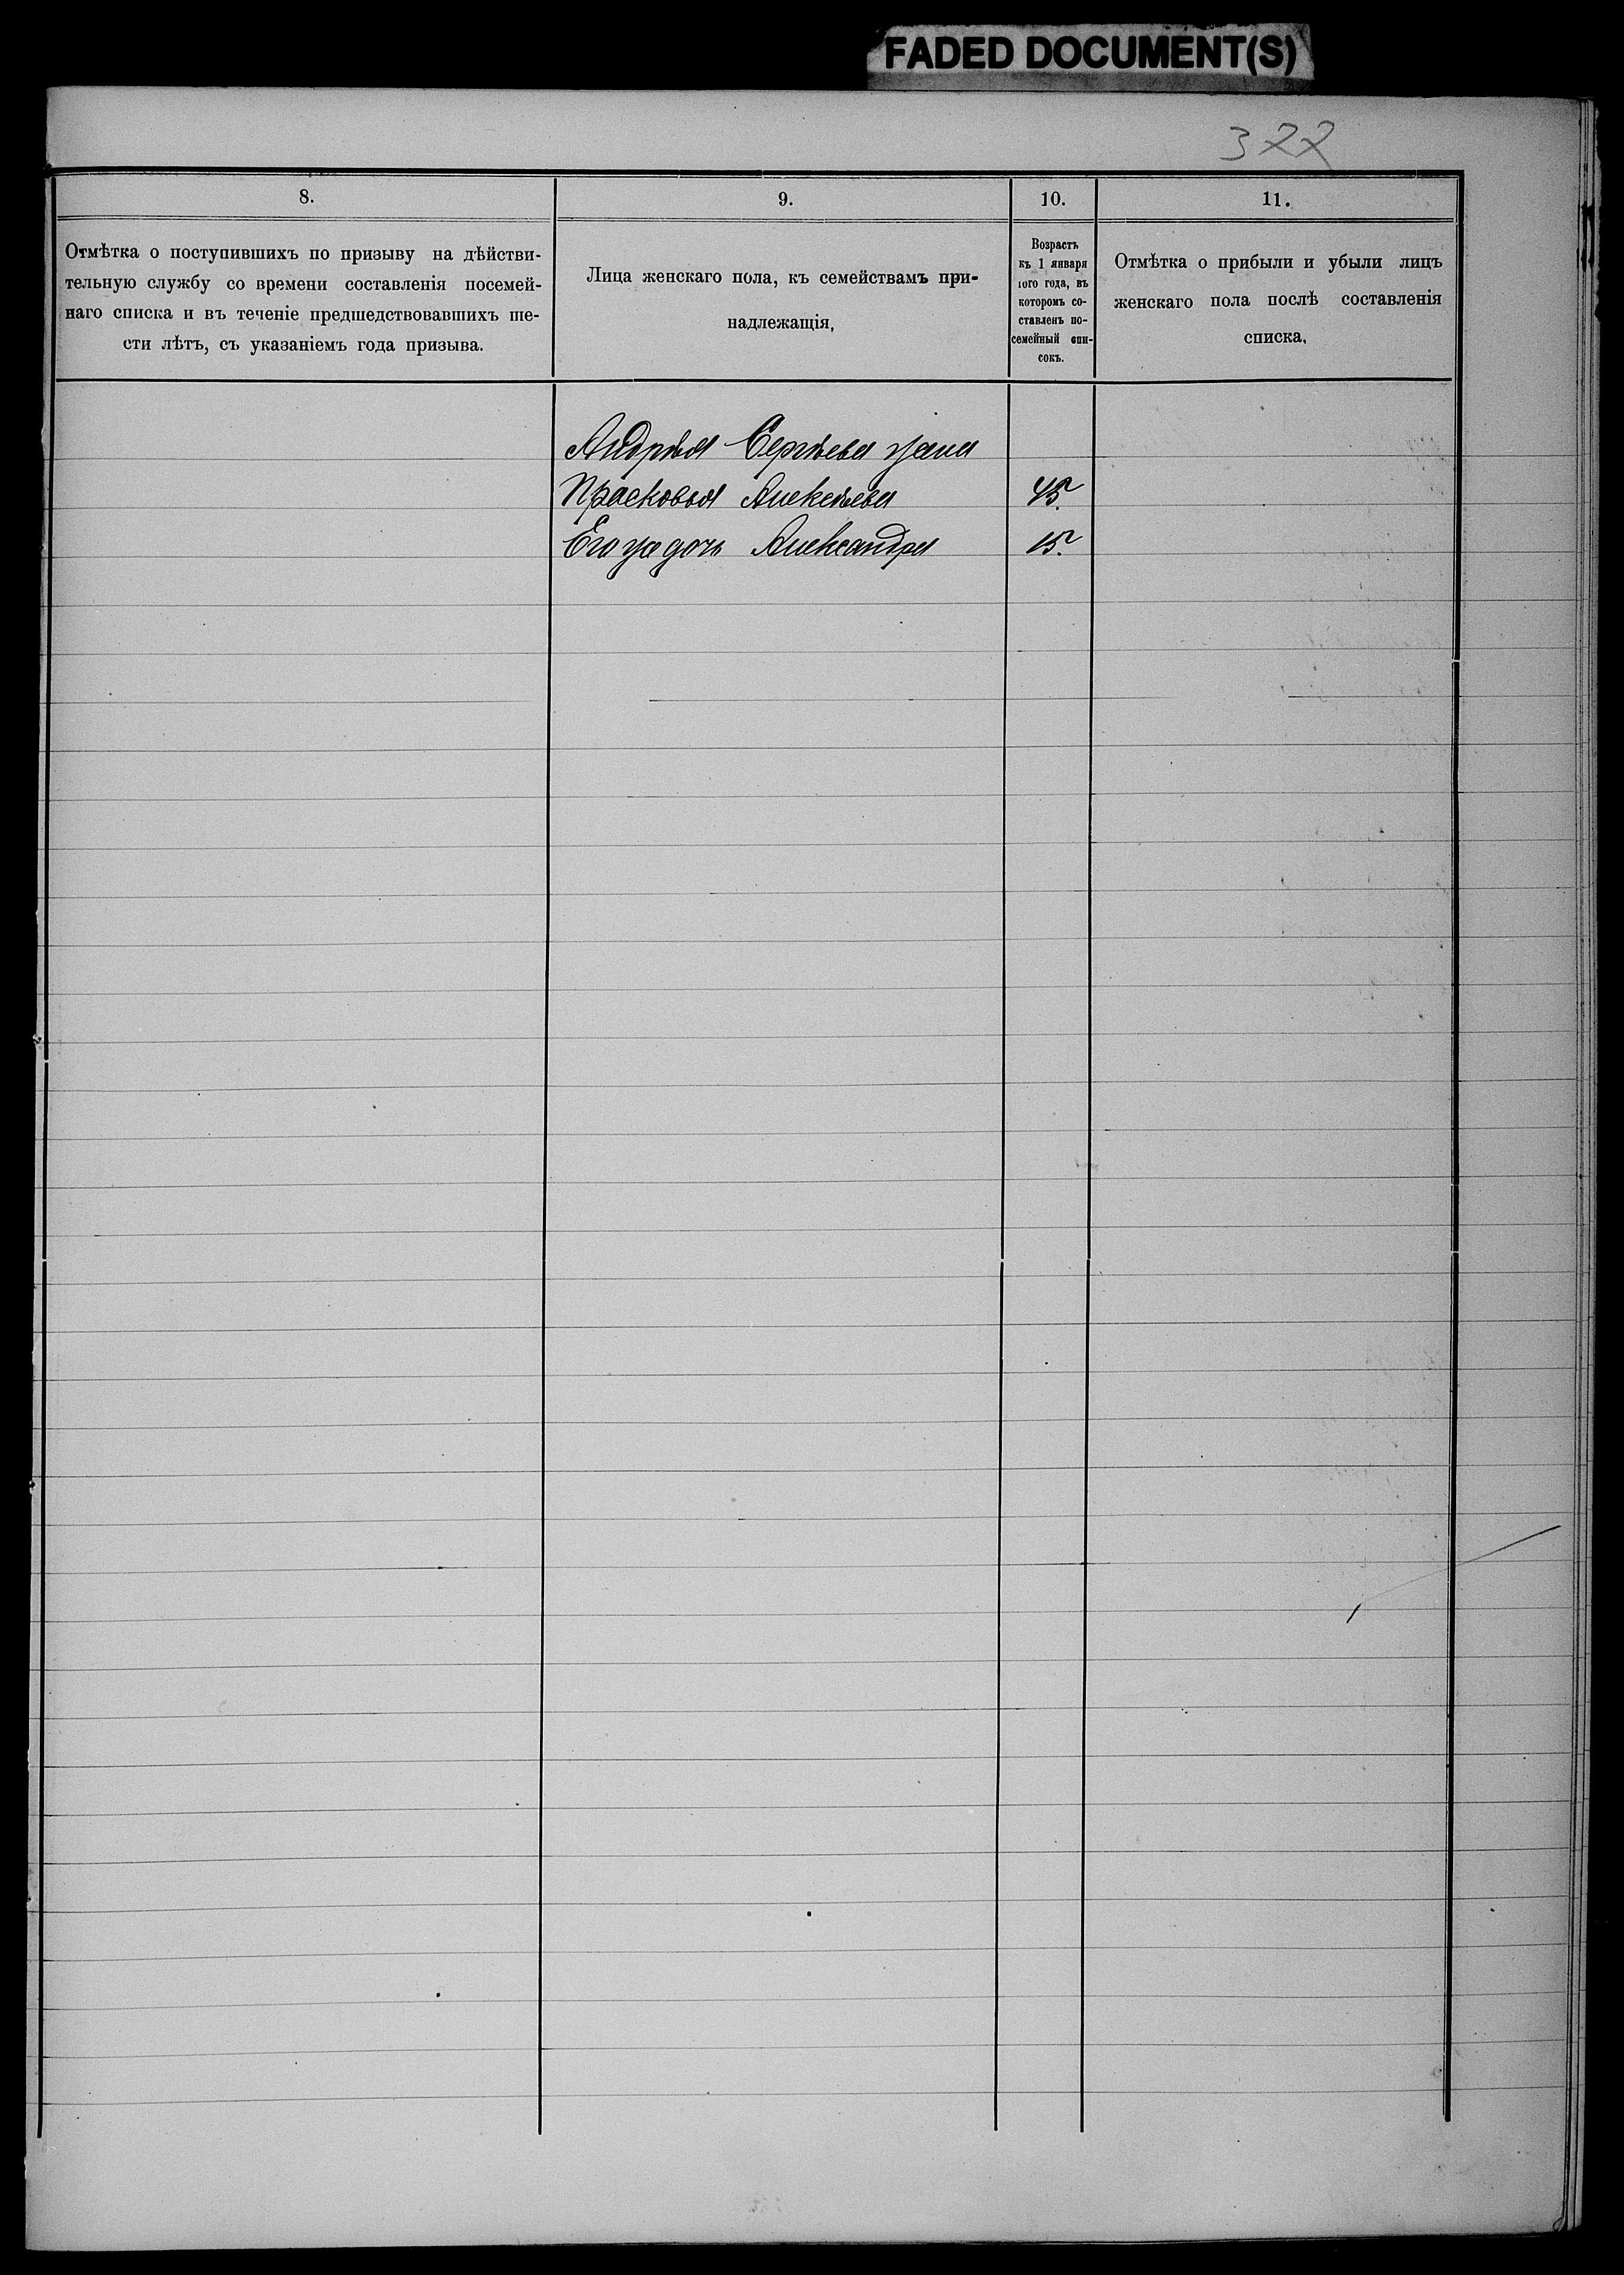 FADED DOCUMENT(S)
322
8.
9.
10.
11.
Отмѣтка о поступившихъ по призыву на дѣйстви-
тельную службу со времени составленія посемей-
наго списка и въ теченіе предшедствовавшихъ ше-
сти лѣтъ, съ указаніемъ года призыва.
Лица женскаго пола, къ семействамъ при-
надлежащія,
Возрастъ
къ 1 января
того года, въ
которомъ со-
ставленъ по-
семейный спи-
сокъ.
Отмѣтка о прибыли и убыли лицъ
женскаго пола послѣ составленія
списка.
Андрѣя Сергѣева жена
Прасковья Алексѣева 45.
Его же дочь Александра 15.